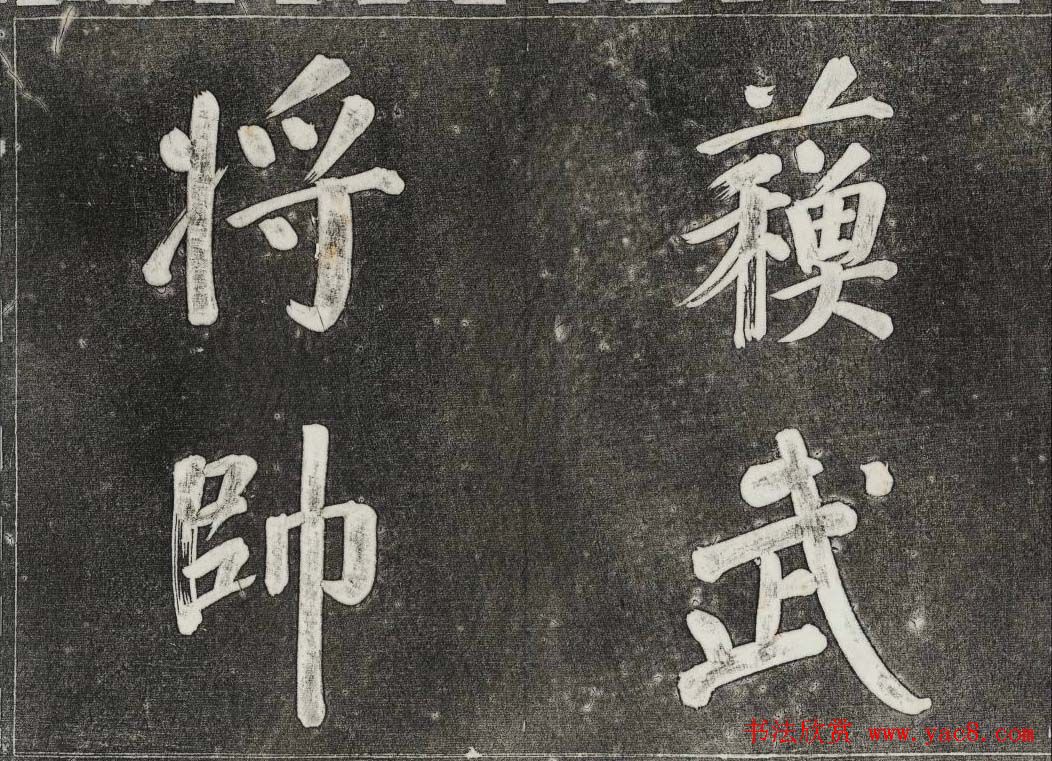 蘓武
将帥
书法欣赏 www.yac8.com